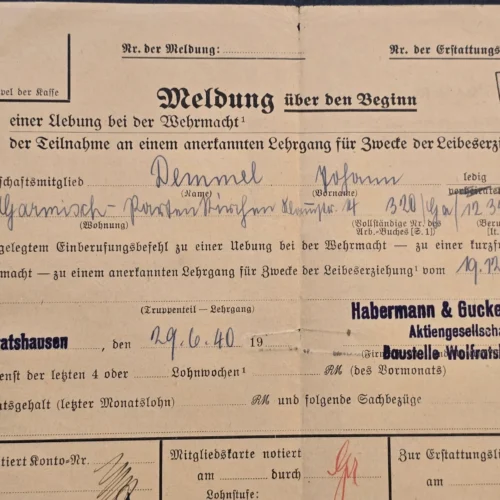 Nr. der Meldung:
Nr. der Erstattungs
pel der Kasse
Meldung über den Beginn
einer Uebung bei der Wehrmacht¹
der Teilnahme an einem anerkannten Lehrgang für Zwecke der Leibeserzie
schaftsmitglied Demmel Johann ledig
(Name) (Vorname) verheiratet
Garmisch-Partenkirchen 4 320/Ga/123
(Wohnung) (Vollständige Nr. des (Beru
Arb.-Buches [S. 1] [lt.
gelegtem Einberufungsbefehl zu einer Uebung bei der Wehrmacht — zu einer kurzf
macht — zu einem anerkannten Lehrgang für Zwecke der Leibeserziehung¹ vom 19.12
(Truppenteil — Lehrgang)
Habermann & Gucke
Aktiengesellscha
ratshausen, den 29.6.40 19
Baustelle Wolfratsh
(Firm
enst der letzten 4 oder Lohnwochen¹ RM (des Vormonats)
atsgehalt (letzter Monatslohn) RM und folgende Sachbezüge
tiert Konto-Nr.
Mitgliedskarte notiert
am durch
Lohnstufe:
Zur Erstattungsli
am